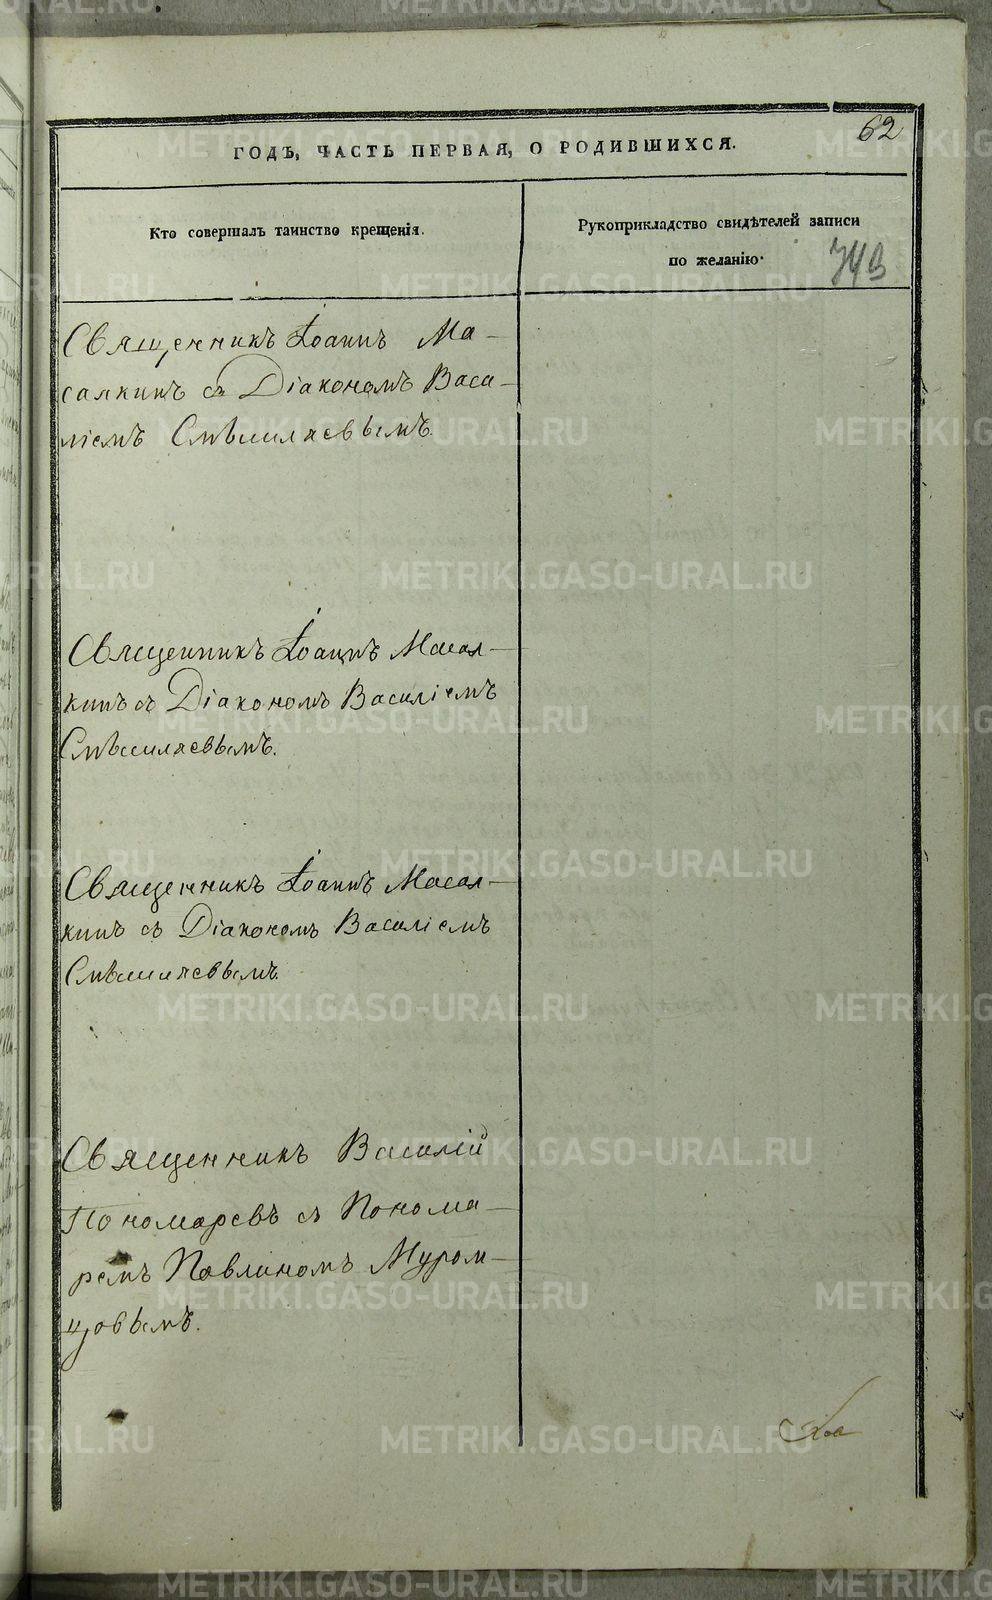 62
ГОДЪ, ЧАСТЬ ПЕРВАЯ, О РОДИВШИХСЯ.
Кто совершалъ таинство крещенія.
Рукоприкладство свидѣтелей записи
по желанію.
343
Священникъ Іоаннъ Ма-
салкинъ съ Діакономъ Васи-
ліемъ Смѣшляевымъ.
Священникъ Іоаннъ Масал-
кинъ съ Діакономъ Василіемъ
Смѣшляевымъ.
Священникъ Іоаннъ Масал-
кинъ съ Діакономъ Василіемъ
Смѣшляевымъ.
Священникъ Василій
Пономаревъ съ Понома-
ремъ Павлиномъ Муром-
цовымъ.
METRIKI.GASO-URAL.RU